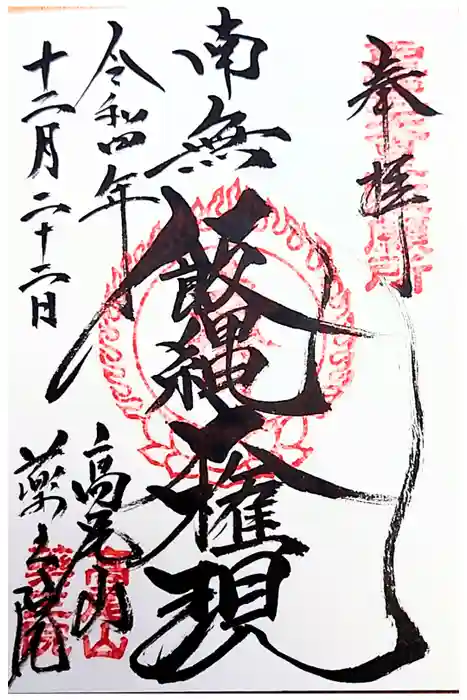 奉拝
南無
飯縄
大権現
令和四年
十二月二十二日
高尾山
薬王院